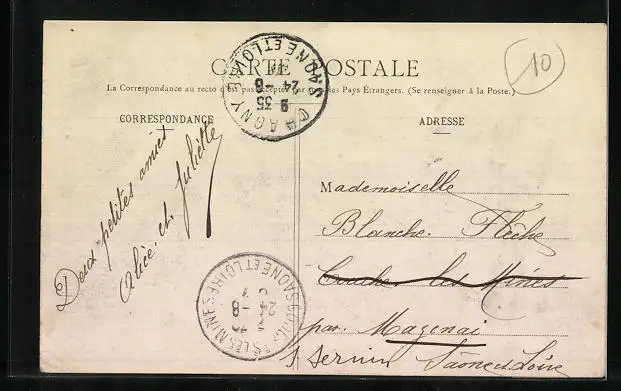 10
CARTE POSTALE
La Correspondance au recto n'est pas acceptée par tous les Pays Étrangers. (Se renseigner à la Poste.)
CHAGNY
SAONE ET LOIRE
9 35
24 - 8
CORRESPONDANCE
Deux petites amies
Alice et Juliette
ADRESSE
Mademoiselle
Blanche Flèche
Couches les Mines
par Mazenai
St Sernin Saône et Loire
LES MINES
SAONE ET LOIRE
24 - 8